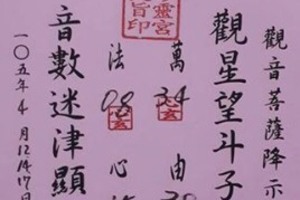 觀音菩薩降示
觀星望斗子
萬34由
靈宮
旨印
法08心
音數迷津顯
一〇五年4月12.14.17日